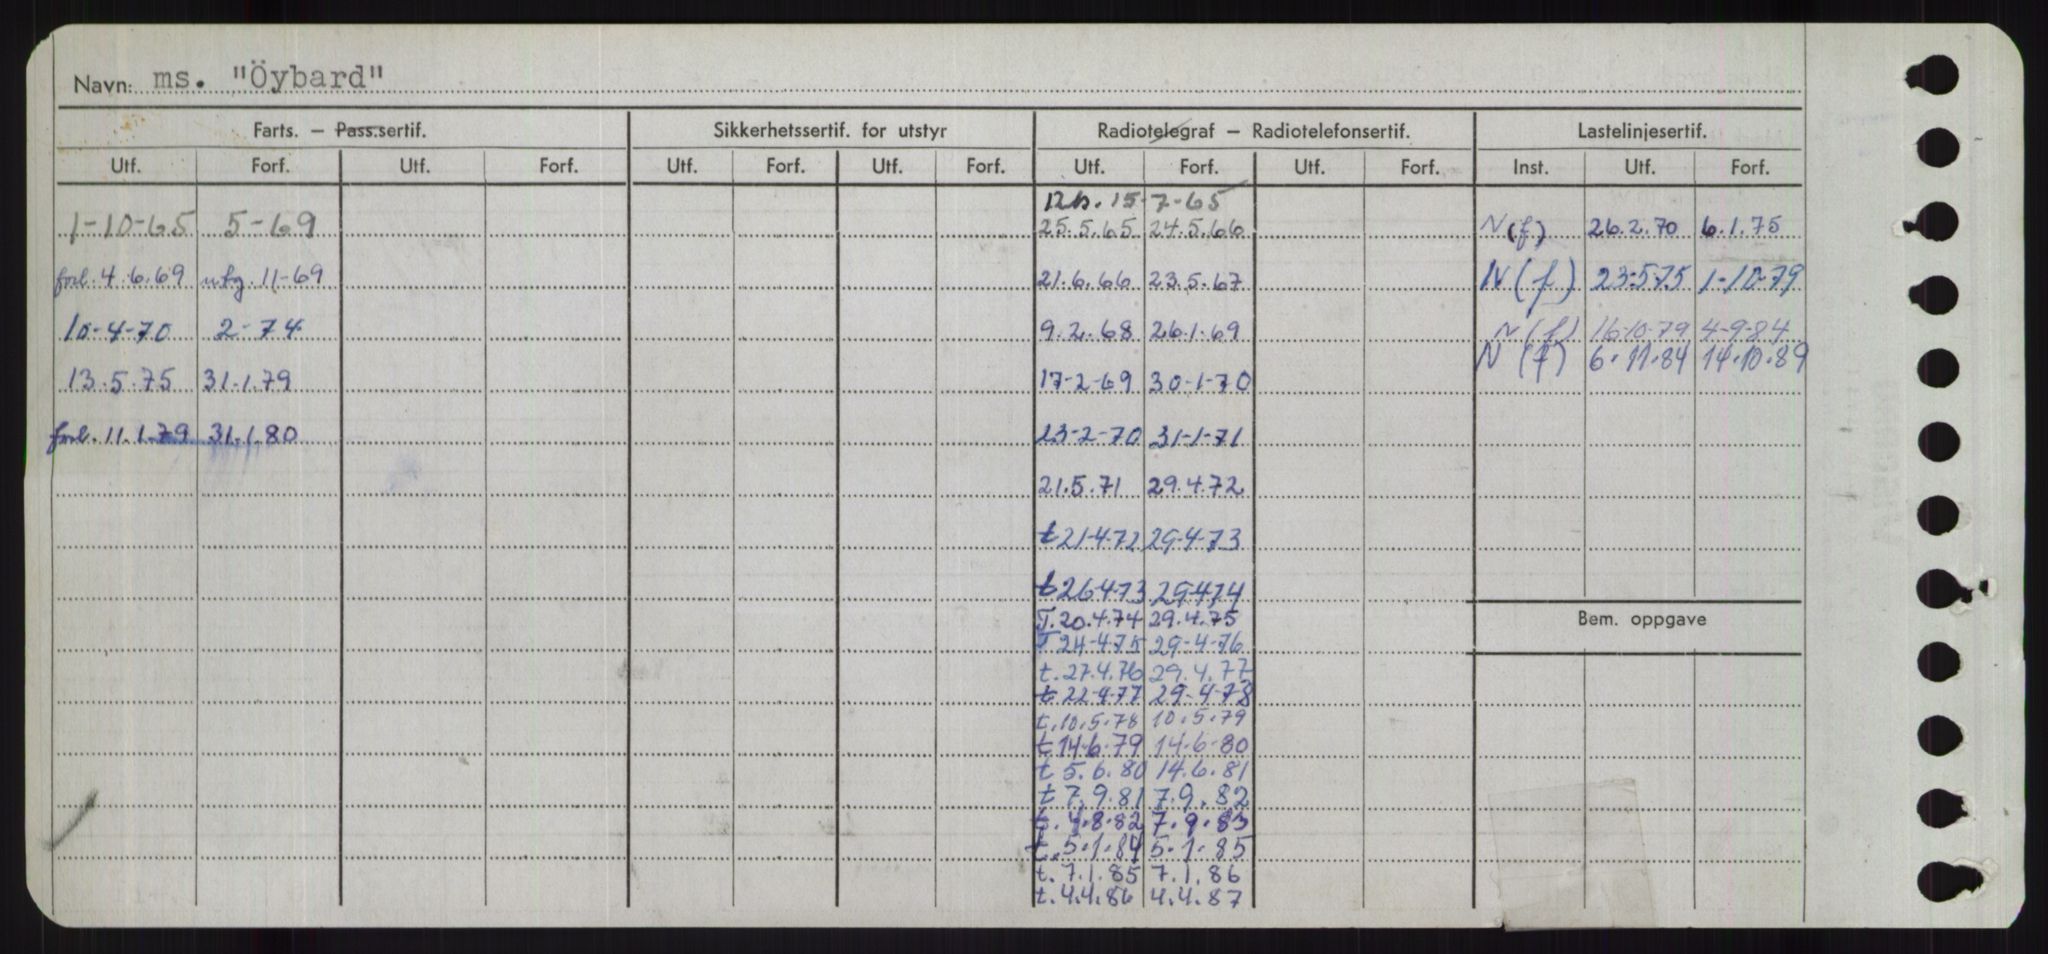 Navn: ms. "Öybard"
Farts. — Pass.sertif. Sikkerhetssertif. for utstyr Radiotelegraf — Radiotelefonsertif. Lastelinjesertif.
Utf. Forf. Utf. Forf. Utf. Forf. Utf. Forf. Utf. Forf. Utf. Forf. Inst. Utf. Forf.
15-7-65
1-10-65 5-69 25.5.65 24.5.66 N(f) 26.2.70 6.1.75
forl. 4.6.69 utg. 11-69 21.6.66 23.5.67 N(f) 23-5-75 1-10-79
10-4-70 2-74 9.2.68 26.1.69 N(f) 16-10-79 4-9-84
N(f) 6.11.84 14.10.89
13.5.75 31.1.79 17-2-69 30-1-70
forl. 11.1.79 31.1.80 23-2-70 31-1-71
21.5.71 29.4.72
t 21-4-72 29-4-73
t 26-4-73 29-4-74
T. 20.4.74 29.4.75
Bem. oppgave
T 24-4-75 29-4-76
t. 27.4.76 29.4.77
t 22-4-77 29-4-78
t. 10.5.78 10.5.79
t 14-6-79 14-6-80
t 5.6.80 14.6.81
t 7.9.81 7.9.82
t. 4.8.82 7.9.83
t. 5.1.84 5.1.85
t. 7.1.85 7.1.86
t. 4.4.86 4.4.87